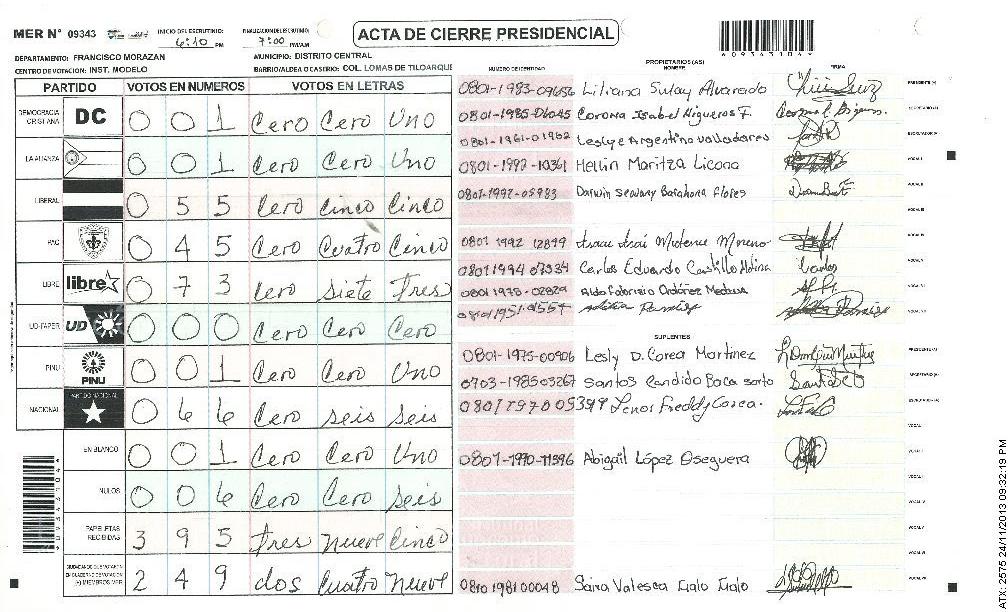 MER N° 09343 INICIO DEL ESCRUTINIO: 6:10 PM FINALIZACION DEL ESCRUTINIO: 7:00 PM/AM ACTA DE CIERRE PRESIDENCIAL
DEPARTAMENTO: FRANCISCO MORAZAN MUNICIPIO: DISTRITO CENTRAL
CENTRO DE VOTACION: INST. MODELO BARRIO/ALDEA O CASERIO: COL. LOMAS DE TILOARQUE
PARTIDO VOTOS EN NUMEROS VOTOS EN LETRAS
DEMOCRACIA CRISTIANA DC 0 0 1 Cero Cero Uno
LA ALIANZA 0 0 1 Cero Cero Uno
LIBERAL 0 5 5 Cero Cinco Cinco
PAC 0 4 5 Cero Cuatro Cinco
LIBRE libre 0 7 3 Cero siete Tres
UD-FAPER UD 0 0 0 Cero Cero Cero
PINU PINU 0 0 1 Cero Cero Uno
NACIONAL PARTIDO NACIONAL 0 6 6 Cero seis seis
EN BLANCO 0 0 1 Cero Cero Uno
NULOS 0 0 6 Cero Cero seis
PAPELETAS RECIBIDAS 3 9 5 tres nueve Cinco
2 4 9 dos Cuatro Nueve
NUMERO DE IDENTIDAD PROPIETARIOS (AS) NOMBRE FIRMA
0801-1983-09656 Liliana Sulay Alvarado
0801-1985-06045 Corona Isabel Higueros F.
0801-1961-01962 Leslye Argentina Valladares
0801-1992-10361 Hellin Maritza Licona
0801-1992-05983 Darwin Barahona Flores
0801 1992 12819 Moreno
0801 1994 07334 Carlos Eduardo Castillo Molina Carlos
0801 1978-02829 Aldo Fabrizio Ordóñez
0801 1951-01554 Ramirez
SUPLENTES
0801-1975-00906 Lesly D. Corea Martinez
0703-198503267 Santos Candido Baca
Lenos Freddy Corea.
0801-1990-11396 Abigail López Oseguera
0810 1981 00048 Saira Valesca Lalo Lalo
4093431044
ATX-2575 24/11/2013 09:32:19 PM